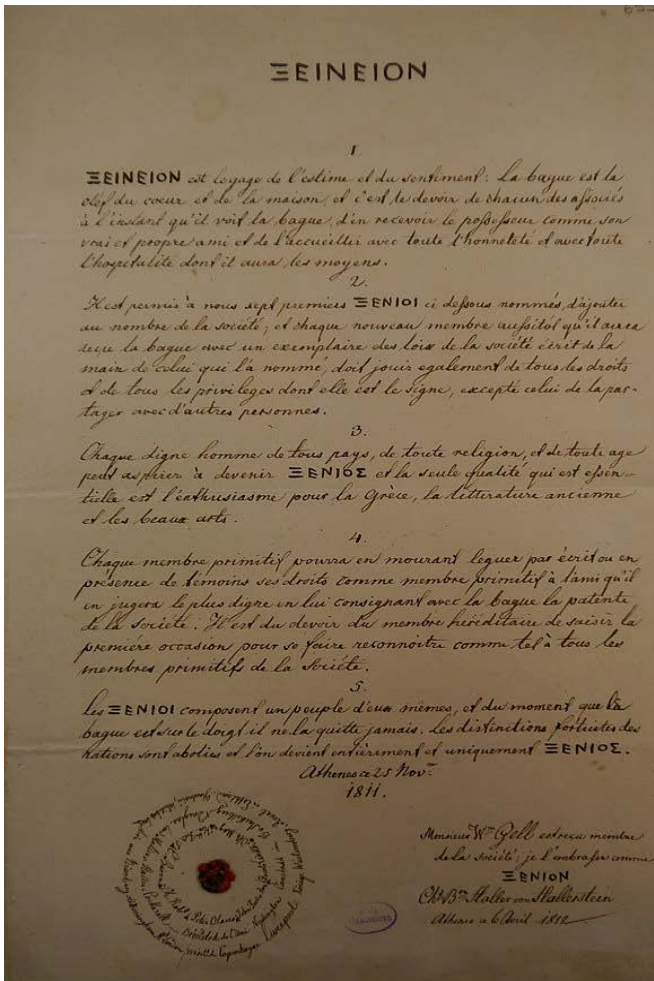 ΞEINEION
1.
ΞEINEION est le gage de l'estime et du sentiment: La bague est la
clef du coeur et de la maison, et c'est le devoir de chacun des associés
à l'instant qu'il voit la bague, d'en recevoir le possesseur comme son
vrai et propre ami et de l'accueillir avec toute l'honneteté et avec toute
l'hospitalité dont il aura les moyens.
2.
Il est permis à nous sept premiers ΞENIOI ci dessous nommés, d'ajouter
au nombre de la société; et chaque nouveau membre aussitôt qu'il aura
reçu la bague avec un exemplaire des loix de la société écrit de la
main de celui qui l'à nommé, doit jouir egalement de tous les droits
et de tous les privileges dont elle est le signe, excepté celui de la par-
tager avec d'autres personnes.
3.
Chaque digne homme de tous pays, de toute religion, et de toute age
peut aspirer à devenir ΞENIOΣ et la seule qualité qui est essen-
tielle est l'enthusiasme pour la Grèce, la litterature ancienne
et les beaux arts.
4.
Chaque membre primitif pourra en mourant leguer par écrit ou en
présence de témoins ses droits comme membre primitif à l'ami qu'il
en jugera le plus digne en lui consignant avec la bague la patente
de la société: Il est du devoir du membre héréditaire de saisir la
première occasion pour se faire reconnoitre comme tel à tous les
membres primitifs de la Société.
5.
Les ΞENIOI composent un peuple d'eux mêmes, et du moment que la
bague est sur le doigt il ne la quitte jamais. Les distinctions fortuites des
nations sont abolies et l'on devient entièrement et uniquement ΞENIOΣ.
Athenes ce 25 Novr.
1811.
Monsieur Wm Gell est reçu membre
de la société; je l'embrasse comme
ΞENION
Chs Bn Haller von Hallerstein
Athenes ce 6 Avril 1812
Liverpool